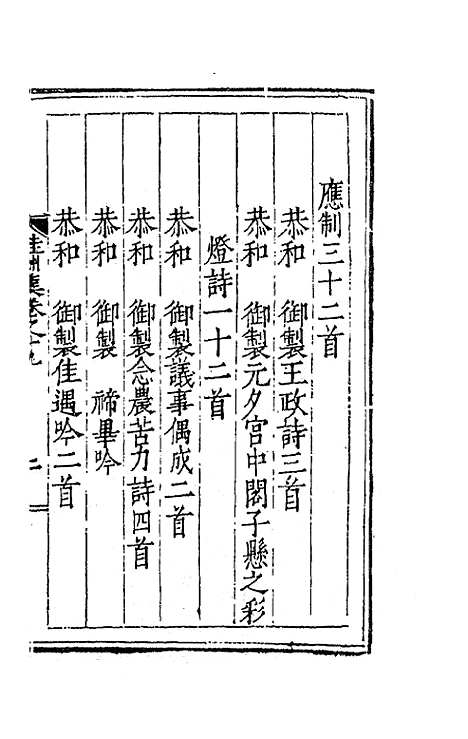 應制三十二首
恭和　御製王政詩三首
恭和　御製元夕宮中閣子懸之彩
燈詩一十二首
恭和　御製議事偶成二首
恭和　御製念農苦力詩四首
恭和　御製　禘畢吟
恭和　御製佳遇吟二首
桂洲集卷之十九